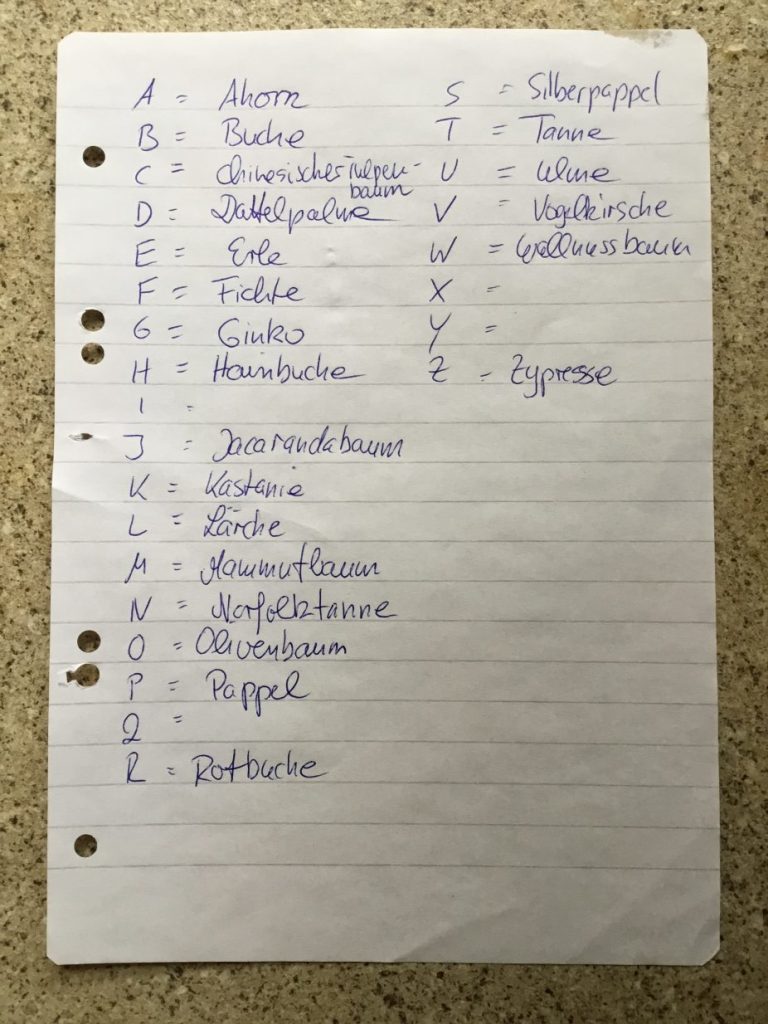 A = Ahorn
B = Buche
C = Chinesischer Tulpen-
baum
D = Dattelpalme
E = Erle
F = Fichte
G = Ginko
H = Hainbuche
I =
J = Jacarandabaum
K = Kastanie
L = Lärche
M = Mammutbaum
N = Norfolktanne
O = Olivenbaum
P = Pappel
Q =
R = Rotbuche
S = Silberpappel
T = Tanne
U = Ulme
V = Vogelkirsche
W = Wallnussbaum
X =
Y =
Z = Zypresse